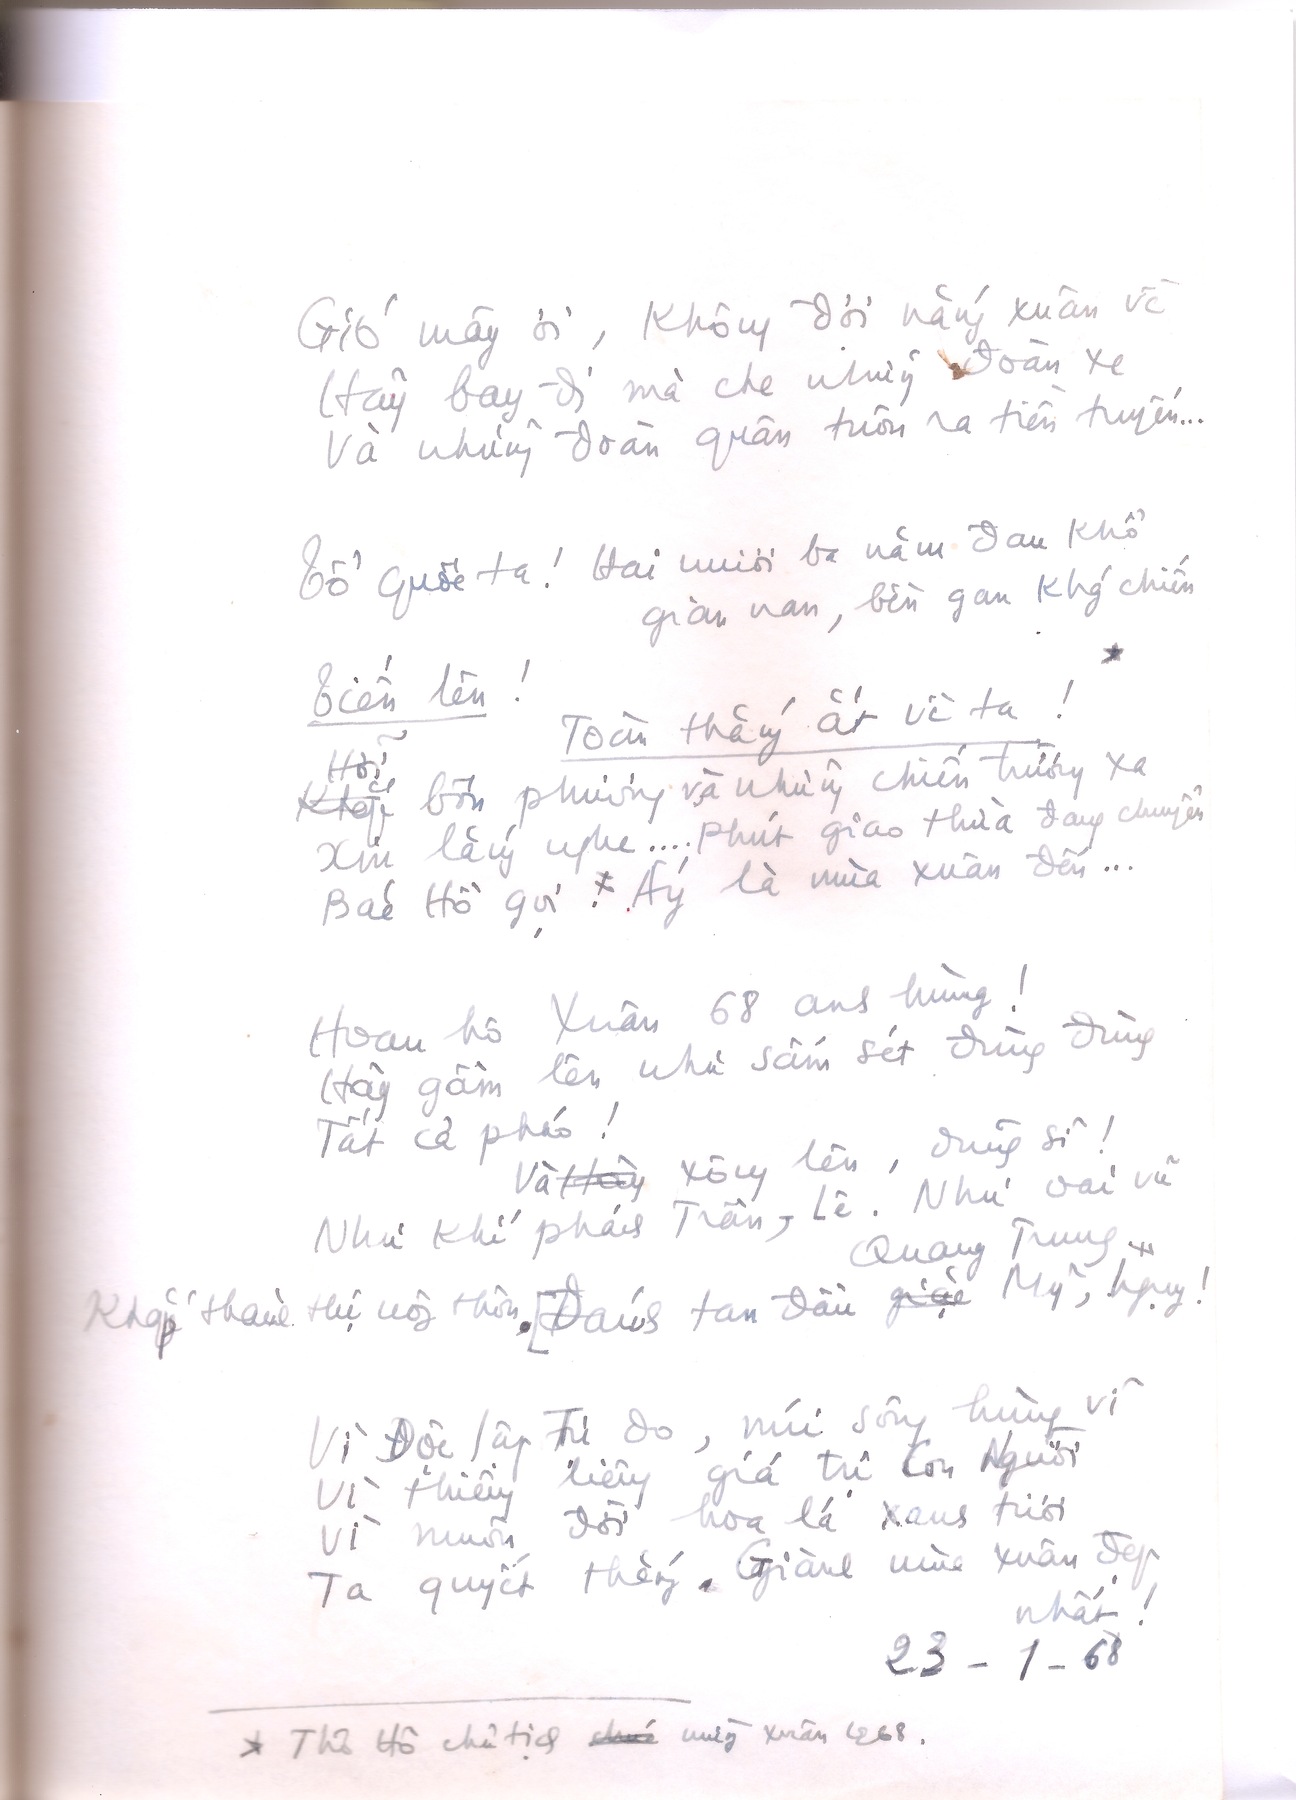 Gió mây ơi, không đợi nắng xuân về
Hãy bay đi mà che những đoàn xe
Và những đoàn quân tuôn ra tiền tuyến...
Tổ quốc ta! Hai mươi ba năm đau khổ
gian nan, bền gan kháng chiến
*
Tiến lên!
Toàn thắng ắt về ta!
Hỡi
Khắp bốn phương và những chiến trường xa
Xin lắng nghe.... phút giao thừa đang chuyển
Bác Hồ gọi * Ấy là mùa xuân đến...
Hoan hô Xuân 68 anh hùng!
Hãy gầm lên như sấm sét đùng đùng
Tất cả pháo!
Và Hãy xông lên, dũng sĩ!
Như khí phách Trần, Lê. Như oai vũ
Quang Trung
Khắp thành thị nông thôn. [Đánh tan đầu giặc Mỹ, Ngụy!
Vì Độc lập Tự do, núi sông hùng vĩ
Vì thiêng liêng giá trị Con Người
Vì muôn đời hoa lá xanh tươi
Ta quyết thắng. Giành mùa xuân đẹp
nhất!
23 - 1 - 68
* Thơ Hồ chủ tịch chúc mừng xuân 1968.